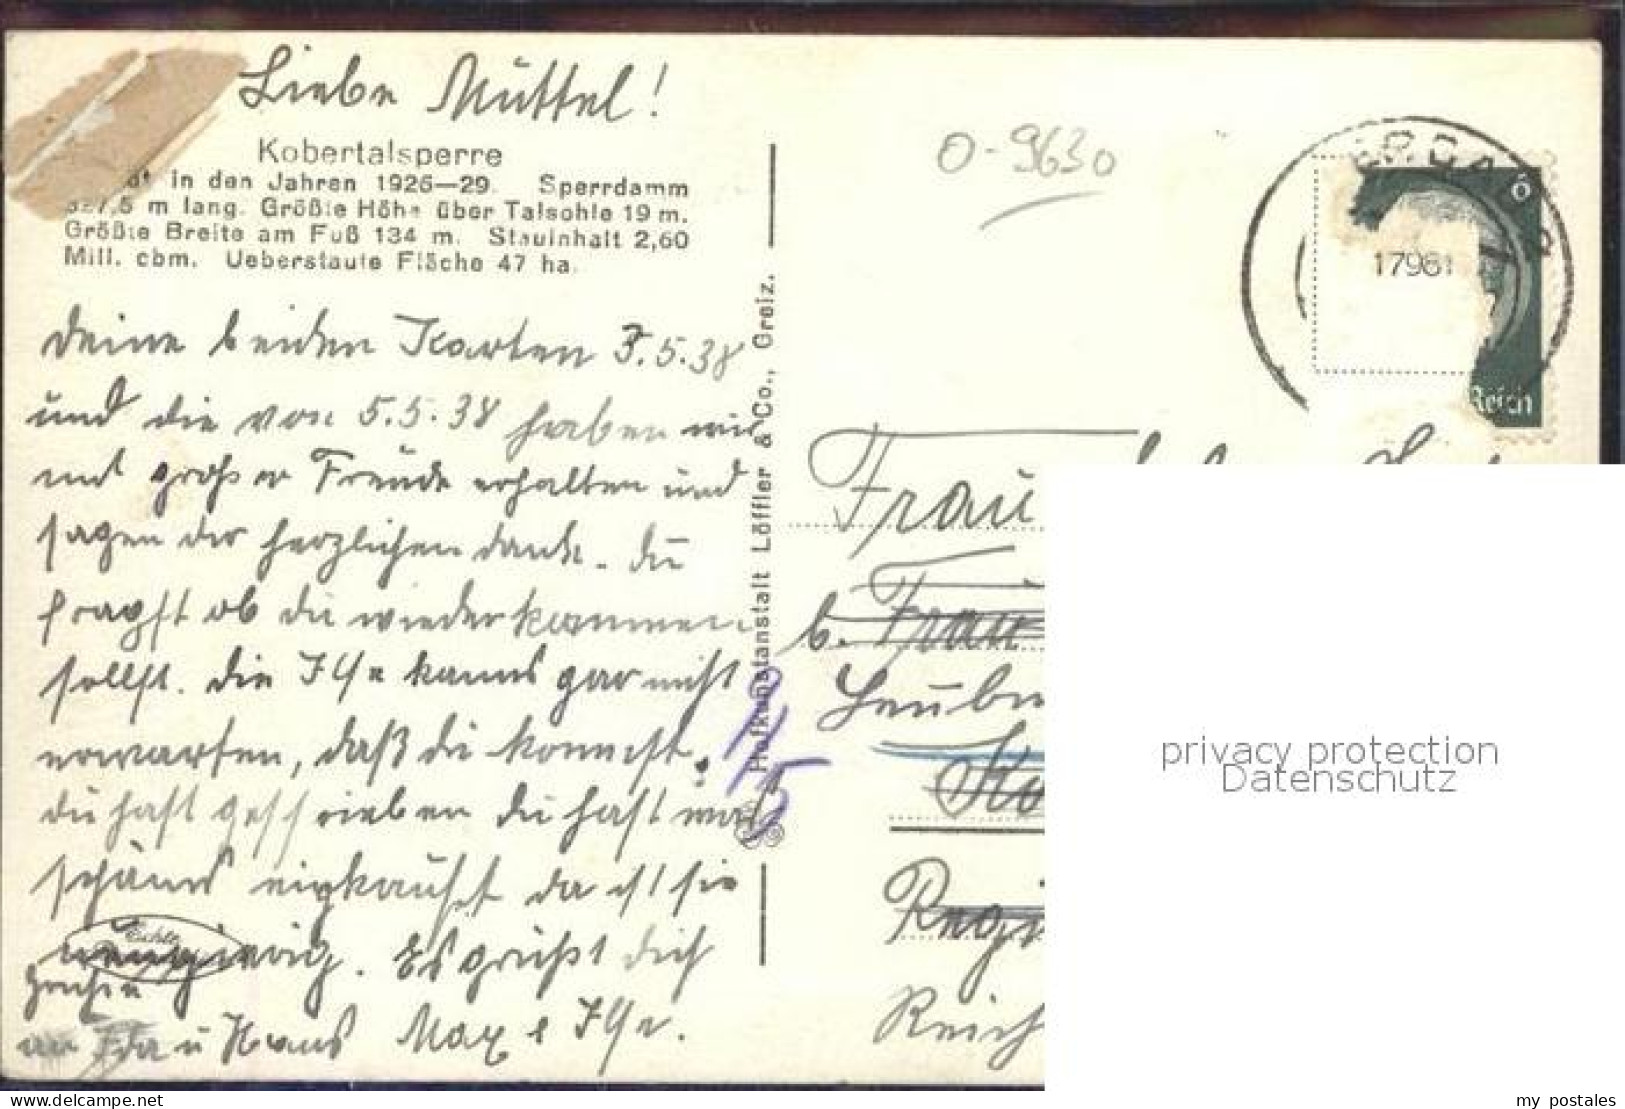 Liebe Muttel!
Kobertalsperre
in den Jahren 1926—29. Sperrdamm
327,5 m lang. Größte Höhe über Talsohle 19 m.
Größte Breite am Fuß 134 m. Stauinhalt 2,60
Mill. cbm. Ueberstaute Fläche 47 ha.
Deine beiden Karten 3.5.38
und die von 5.5.38 haben wir
mit großer Freude erhalten und
sagen dir herzlichen Dank. Du
fragst ob du wiederkommen
sollst. Die Ilse kanns gar nicht
erwarten, daß du kommst.
Du hast geschrieben du hast was
schöns eingkauft da ist sie
neugierig. Es grüßt dich
Max u Ilse.
an Ida u Hans
Echte
Hofkunstanstalt Löffler & Co., Greiz.
O-9630
6
17961
Reich
Frau
b. Frau
Leubn
Ko
Regi
Reich
privacy protection
Datenschutz
my_postales
DELCAMPE.NET